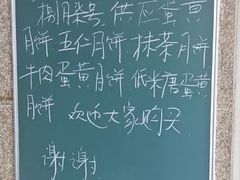 捌月柒号 供应蛋黄
月饼 五仁月饼 抹茶月饼
牛肉蛋黄月饼 低糖蛋黄
月饼 欢迎大家购买
谢谢